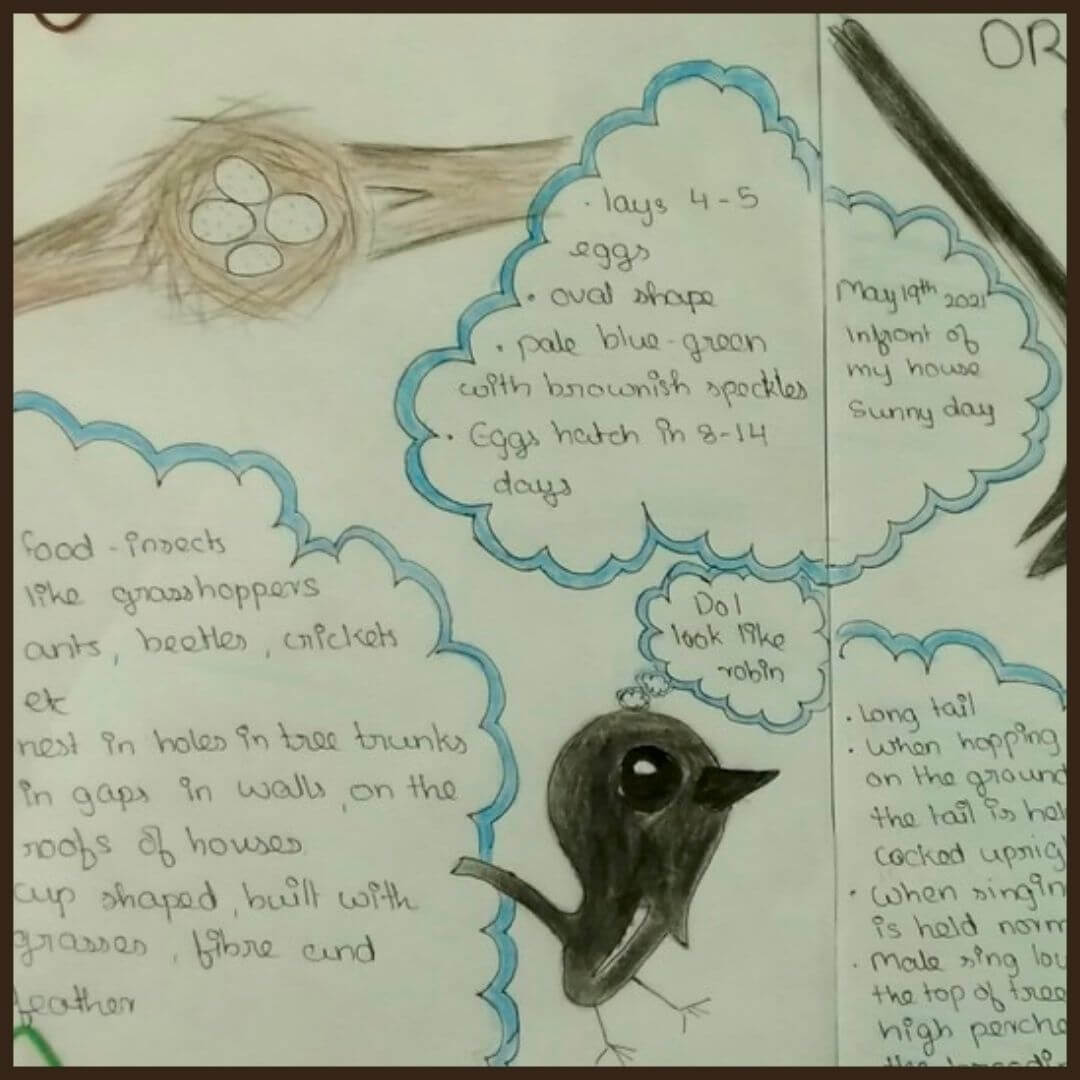 OR
• lays 4-5
eggs
• oval shape
• pale blue-green
with brownish speckles
• Eggs hatch in 8-14
days
May 19th 2021
Infront of
my house
Sunny day
food - insects
like grasshoppers
ants, beetles, crickets
etc
nest in holes in tree trunks
in gaps in walls, on the
roofs of houses
cup shaped, built with
grasses, fibre and
feather
Do I
look like
robin
• Long tail
• When hopping
on the ground
the tail is hel
cocked uprig
• When singin
is held norm
• Male sing lou
the top of tree
high perche